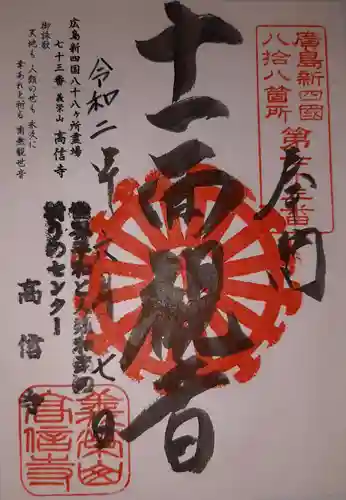 廣島新四國
八拾八箇所
第七十三番
奉拝
十一面観音
令和二年 月 七日
広島新四国八十八ヶ所霊場
七十三番 義栄山 高信寺
御詠歌
天地も 人類の世も 永久に
幸あれと祈る 南無観世音
祈りのセンター
高信寺
義栄山
高信寺